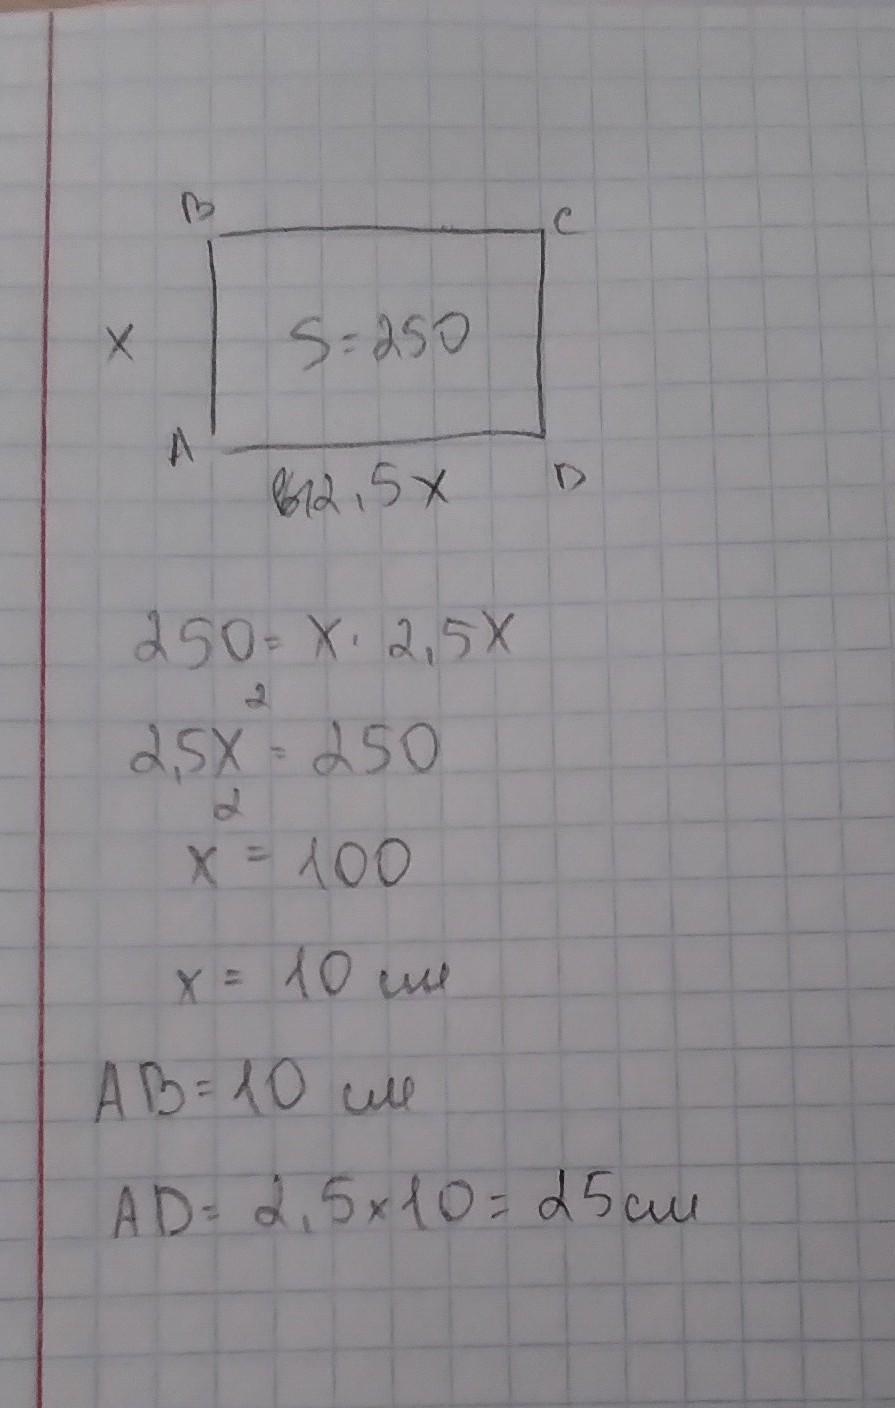 B C
x S=250
A D
2,5x
250= x· 2,5x
2,5x²= 250
x²= 100
x= 10 см
AB=10 см
AD= 2,5×10= 25см